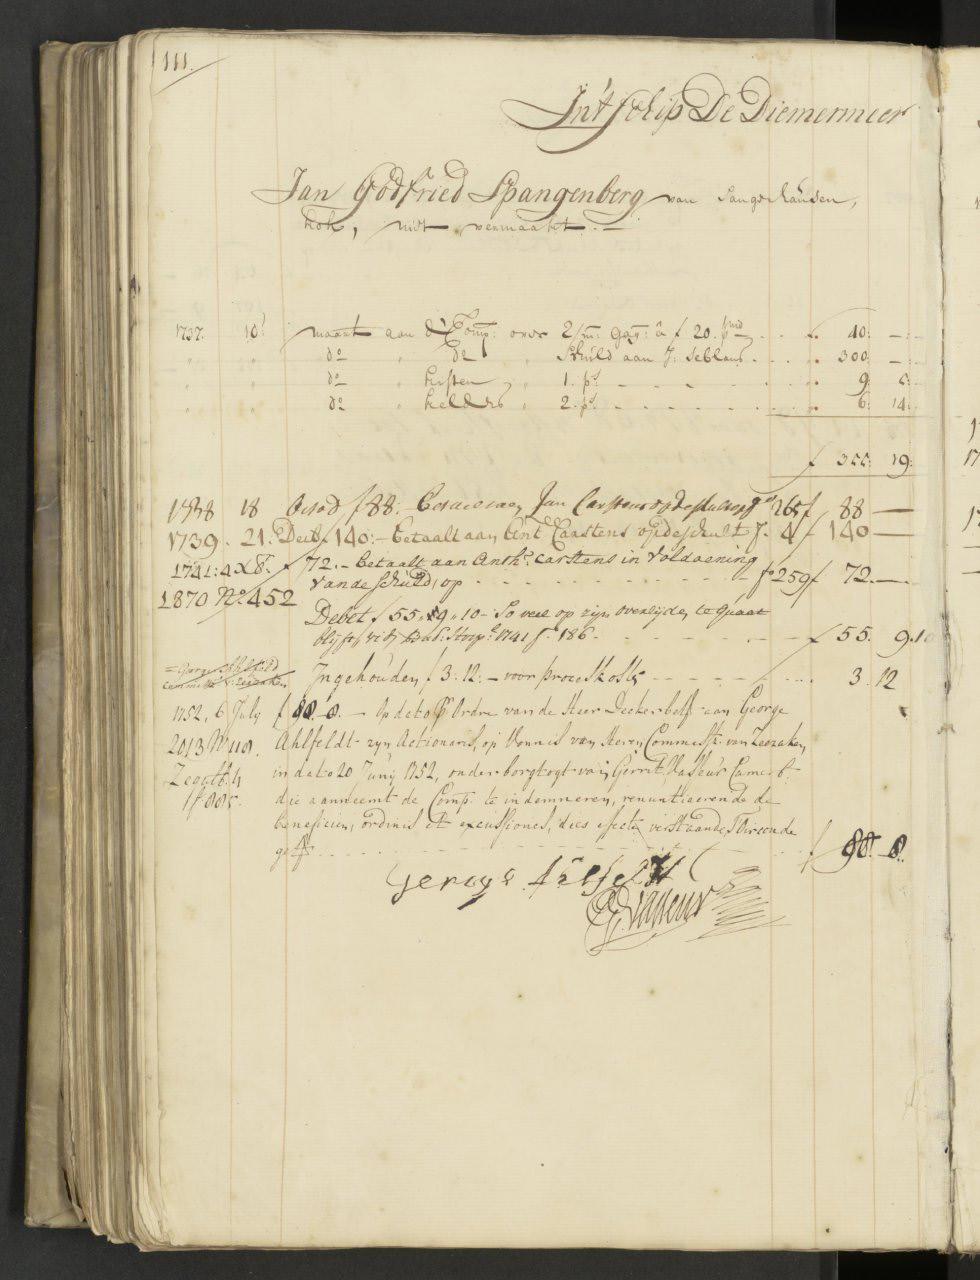 111.
In't schip De Diemermeer
Jan Godfried Spangenberg van Sangerhausen,
kok, niet vermaakt.
1737. 10 maant aan d'Comp: over 2/m: gag: à f 20. p md f 40: —
" " do " De " Schuld aan J: Seblan " 300 —
" " do " kisten " 1. ps. " 9: 5:
" " do " kelders " 2. ps. " 6: 14:
f 355: 19:
1738 18 f 88: Jan Carstens op de schult 265 f 88 —
1739. 21. Debt. f 140:— betaalt aan Ant Carstens op de schult f. 4 f 140 —
1741: f 72.— betaalt aan Anth.s Carstens in voldoening
van de schuld, op fo 259 f 72. —
1870 No. 452
Debet f 55 " 9 " 10 — So veel op zijn overlyde, te quaat
blijft, 1741 f. 186. f 55. 9.10
Ingehouden f 3. 12. — voor proceskoste 3. 12
1752. 6 July f 80. 8. — Op dato p Ordre van de Heer Deckers aan George
2013 No 110. Ahlfeldt zyn Actionaris, op Vonnis van Heren Commiss: van Zeezaken,
in dato 20 Juny 1752, onder borgtogt van Gerrit Vasseur
f 885. die aanneemt de Comp. te indemneren, renuntieerende de
beneficien, ordinis et excussionis, dies effecte verstaande,
f 80 8.
George Ahlfeldt
G. Vasseur